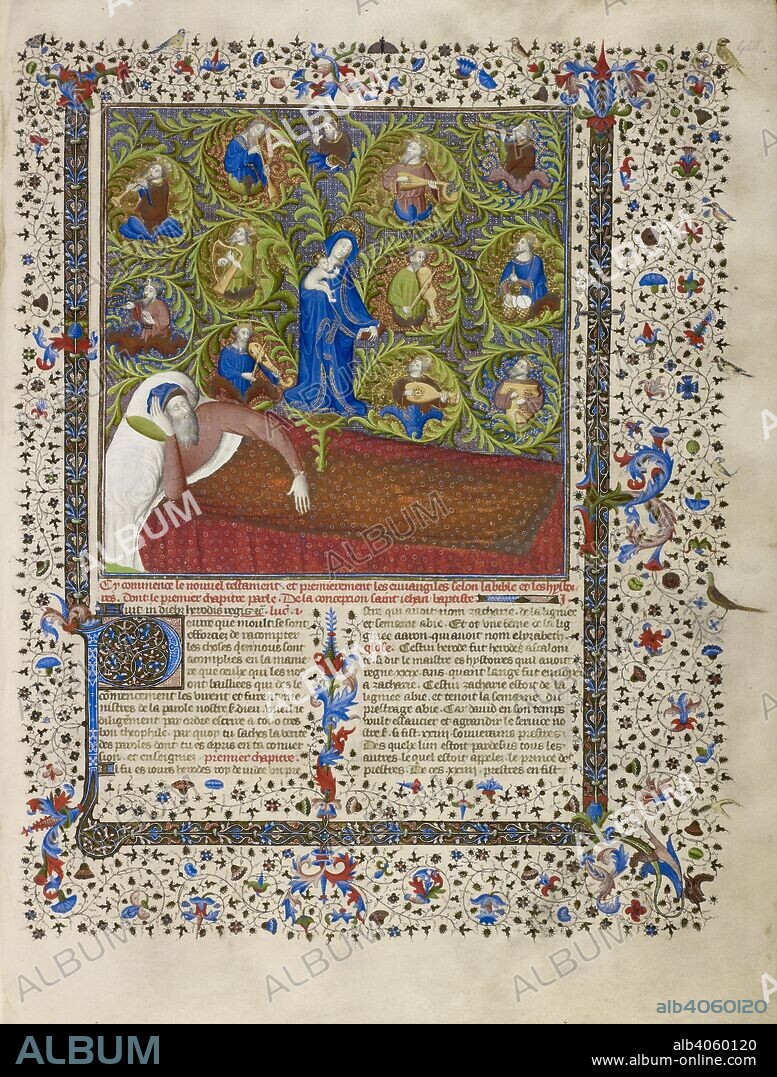 Cy commence le nouvel testament. et premierement les euuangiles selon la bible et les hystoi
res. Dont le premier chapitre parle. De la conception saint iehan baptiste
fuit in dieb herodis regis luc. i
ource que moult se sont
efforciez de racompter
les choses qen nous sont
acomplies en la manie
re que ceulx qui les no
ont bailliees qui des le
commencement les virent et furent me
nistres de la parole nostre
diligemment par ordre escrire a toy o tres
bon theophile. par quoy tu saches la verite
des paroles dont tu es apris en ta conuer
sion. et enseignie. premier chapitre.
fu es iours herodes roy de iudee vn pre
stre qui auoit nom zacharie. de la lignee
et semaine abie. Et ot vne feme de la lig
nee aaron qui auoit nom elyzabeth.
glose. Cestui herode fut herode ascalon
te. dit le maistre es hystoires qui auoit
regne xxx ans. quant lange fut enuoye
a zacharie. Cestui zacharie estoit de la
lignie abie. et tenoit la semaine du
prestrage abie. Car dauid en son temps
voult essaucier et agrandir le seruice no
stre fist xxiiii souuerains prestres.
Des quelx lun estoit pardessus tous les
autres. le quel estoit appele le prince des
prestres. De ces xxiiii prestres en fist
ALBUM
alb4060120
ALBUM
alb4060120
www.album-online.com